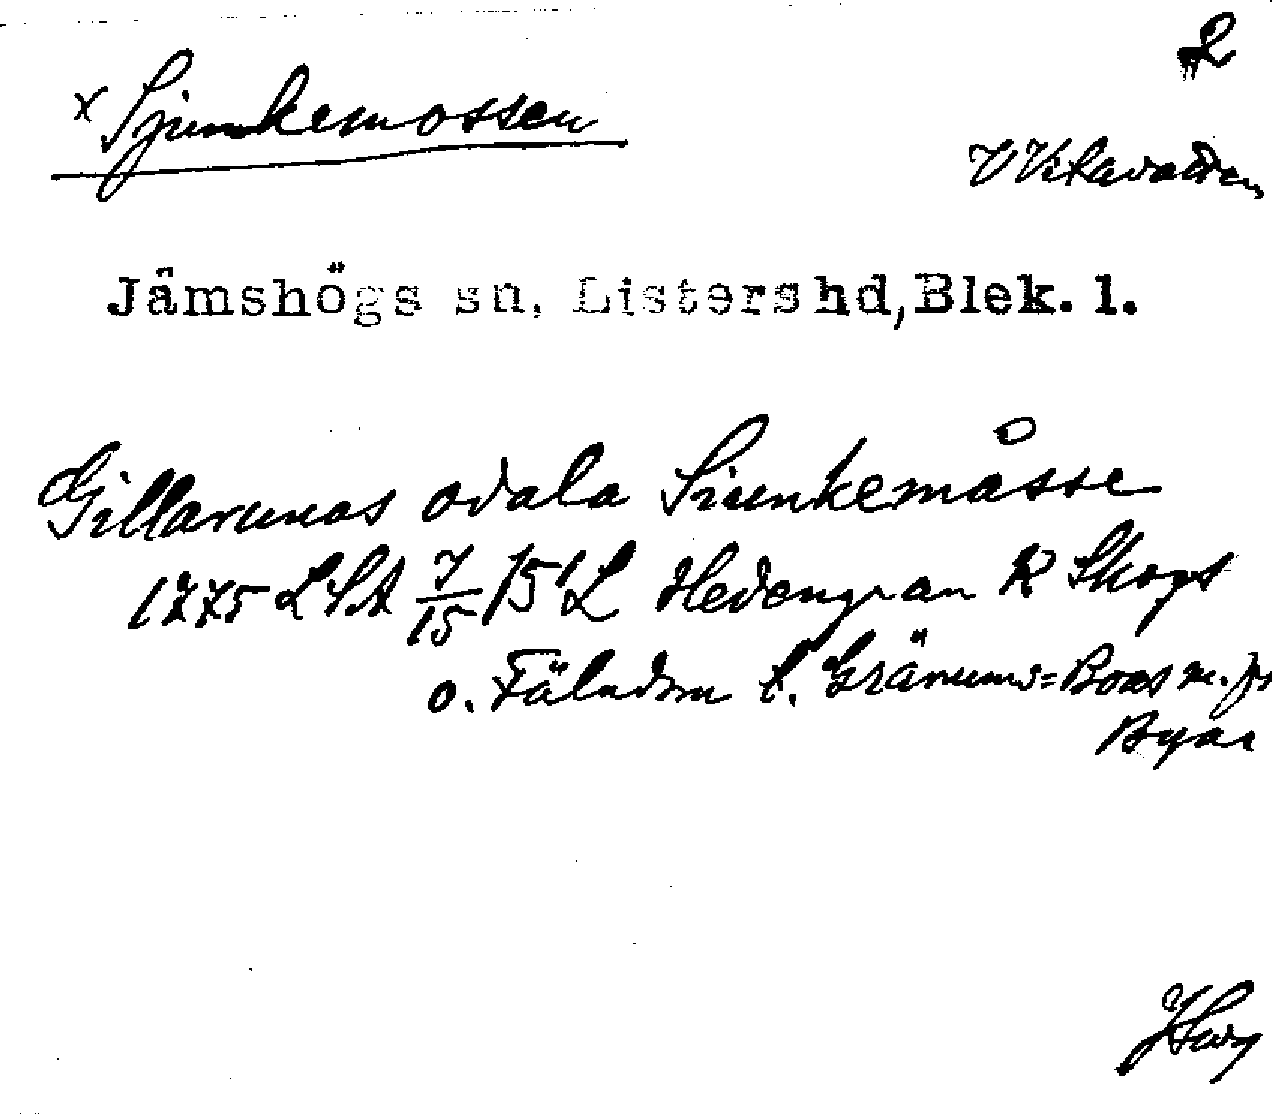 2
x Sjunkemossen
V Vilavaden
Jämshögs sn, Listers hd, Blek. l.
Gillarunas odala Siunkemåsse
1775 LSA 7/15 151 L Hedengran R Skogs
o. Fäladsm t. Gränums=Boas m. fl
Byar